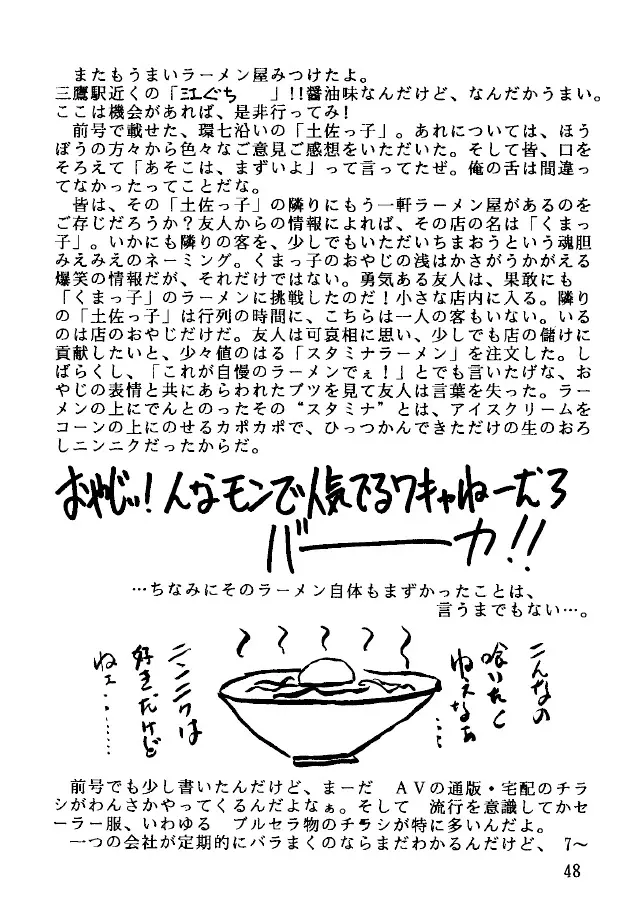 またもうまいラーメン屋みつけたよ。
三鷹駅近くの「江ぐち　　」!!醤油味なんだけど、なんだかうまい。
ここは機会があれば、是非行ってみ!
前号で載せた、環七沿いの「土佐っ子」。あれについては、ほう
ぼうの方々から色々なご意見ご感想をいただいた。そして皆、口を
そろえて「あそこは、まずいよ」って言ってたぜ。俺の舌は間違っ
てなかったってことだな。
皆は、その「土佐っ子」の隣りにもう一軒ラーメン屋があるのを
ご存じだろうか?友人からの情報によれば、その店の名は「くまっ
子」。いかにも隣りの客を、少しでもいただいちまおうという魂胆
みえみえのネーミング。くまっ子のおやじの浅はかさがうかがえる
爆笑の情報だが、それだけではない。勇気ある友人は、果敢にも
「くまっ子」のラーメンに挑戦したのだ!小さな店内に入る。隣り
の「土佐っ子」は行列の時間に、こちらは一人の客もいない。いる
のは店のおやじだけだ。友人は可哀相に思い、少しでも店の儲けに
貢献したいと、少々値のはる「スタミナラーメン」を注文した。し
ばらくし、「これが自慢のラーメンでぇ!」とでも言いたげな、お
やじの表情と共にあらわれたブツを見て友人は言葉を失った。ラー
メンの上にでんとのったその“スタミナ”とは、アイスクリームを
コーンの上にのせるカポカポで、ひっつかんできただけの生のおろ
しニンニクだったからだ。
おやじッ!んなモンで人気でるワキャねーだろ
バーーカ!!
…ちなみにそのラーメン自体もまずかったことは、
言うまでもない…。
こんなの
喰いたく
ねえなぁ
……
ニンニクは
好きだけど
ねェ………
前号でも少し書いたんだけど、まーだ　ＡＶの通販・宅配のチラ
シがわんさかやってくるんだよなぁ。そして　流行を意識してかセ
ーラー服、いわゆる　ブルセラ物のチラシが特に多いんだよ。
一つの会社が定期的にバラまくのならまだわかるんだけど、 7～
48